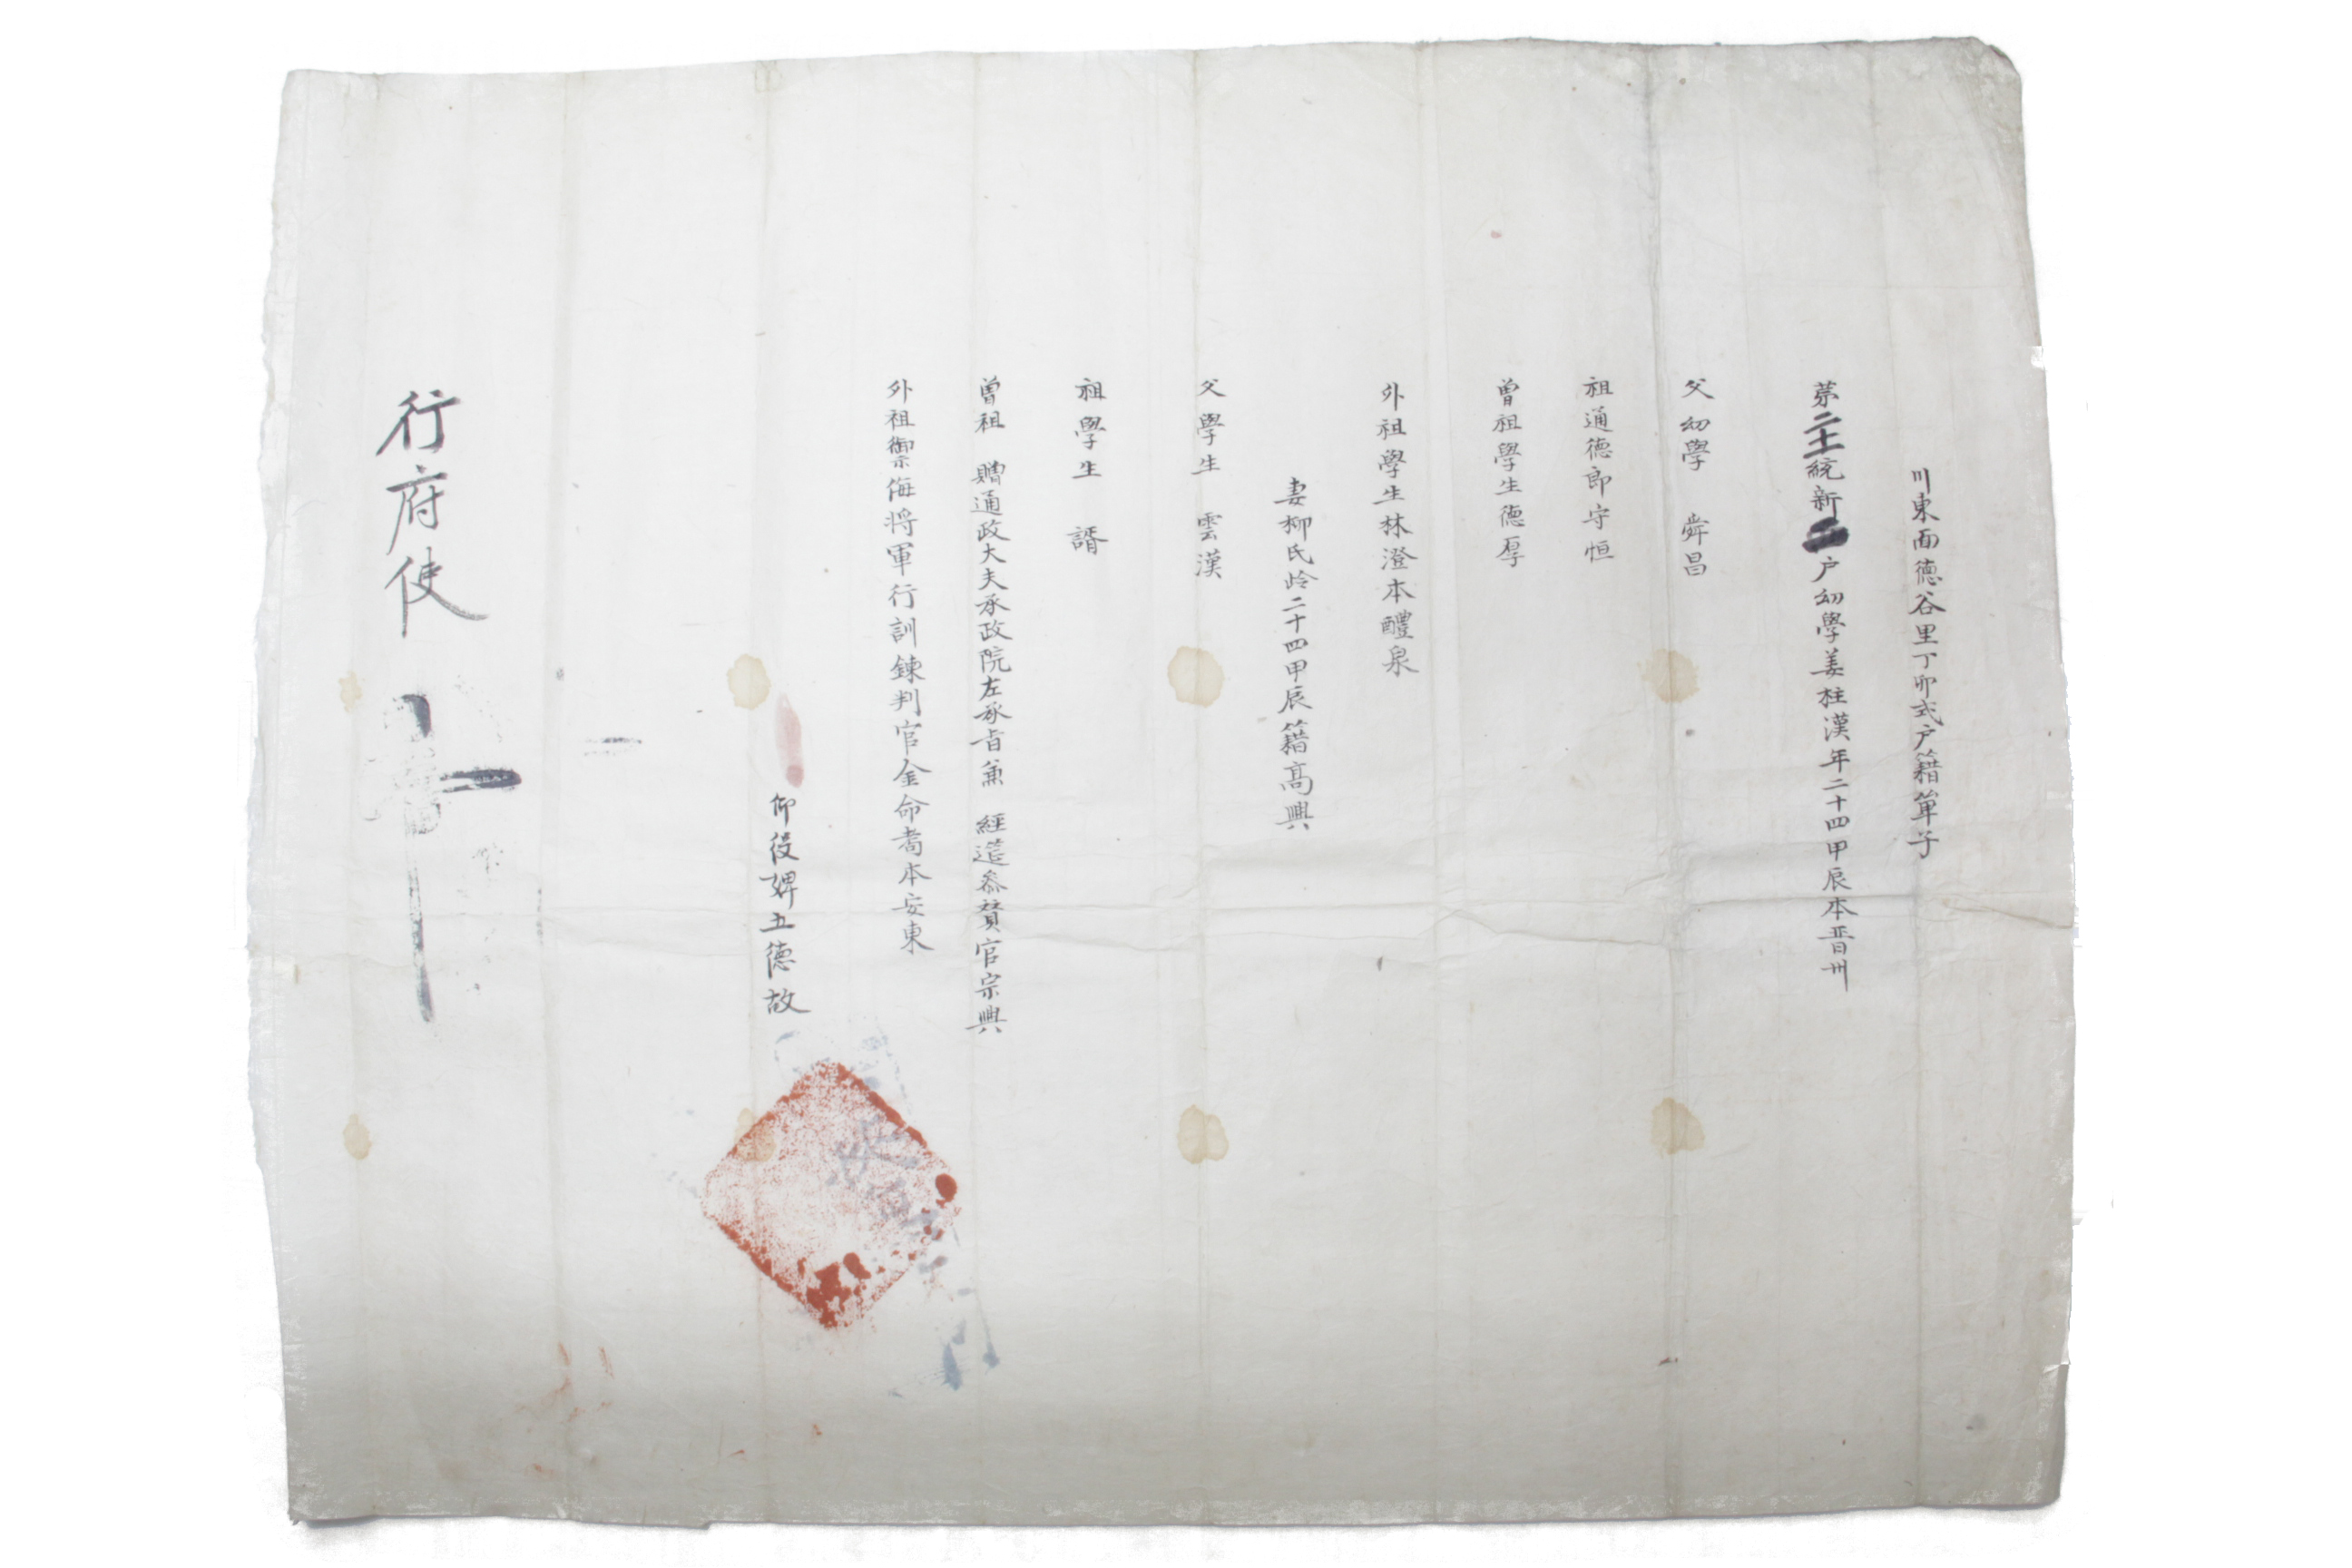 川東面德谷里丁卯式戶籍單子
第二十統新戶幼學姜柱漢年二十四甲辰本晋州
父幼學 舜昌
祖通德郎守恒
曾祖學生德厚
外祖學生林澄本醴泉
妻柳氏齡二十四甲辰籍高興
父學生 雲漢
祖學生 諝
曾祖 贈通政大夫承政院左承旨兼 經筵參贊官宗興
外祖禦侮將軍行訓鍊判官金命耉本安東
仰役婢五德故
行府使